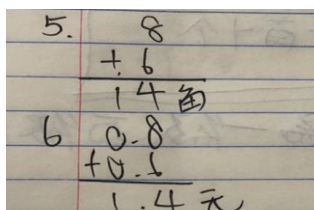 5. 8
+. 6
14角
6 0.8
+0.6
1.4元